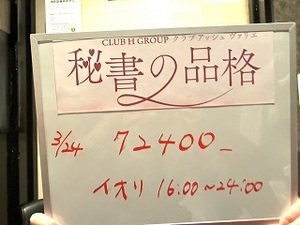 CLUB H GROUP クラブ アッシュ ヴァリエ
秘書の品格
3/24 72400_
イオリ 16:00~24:00